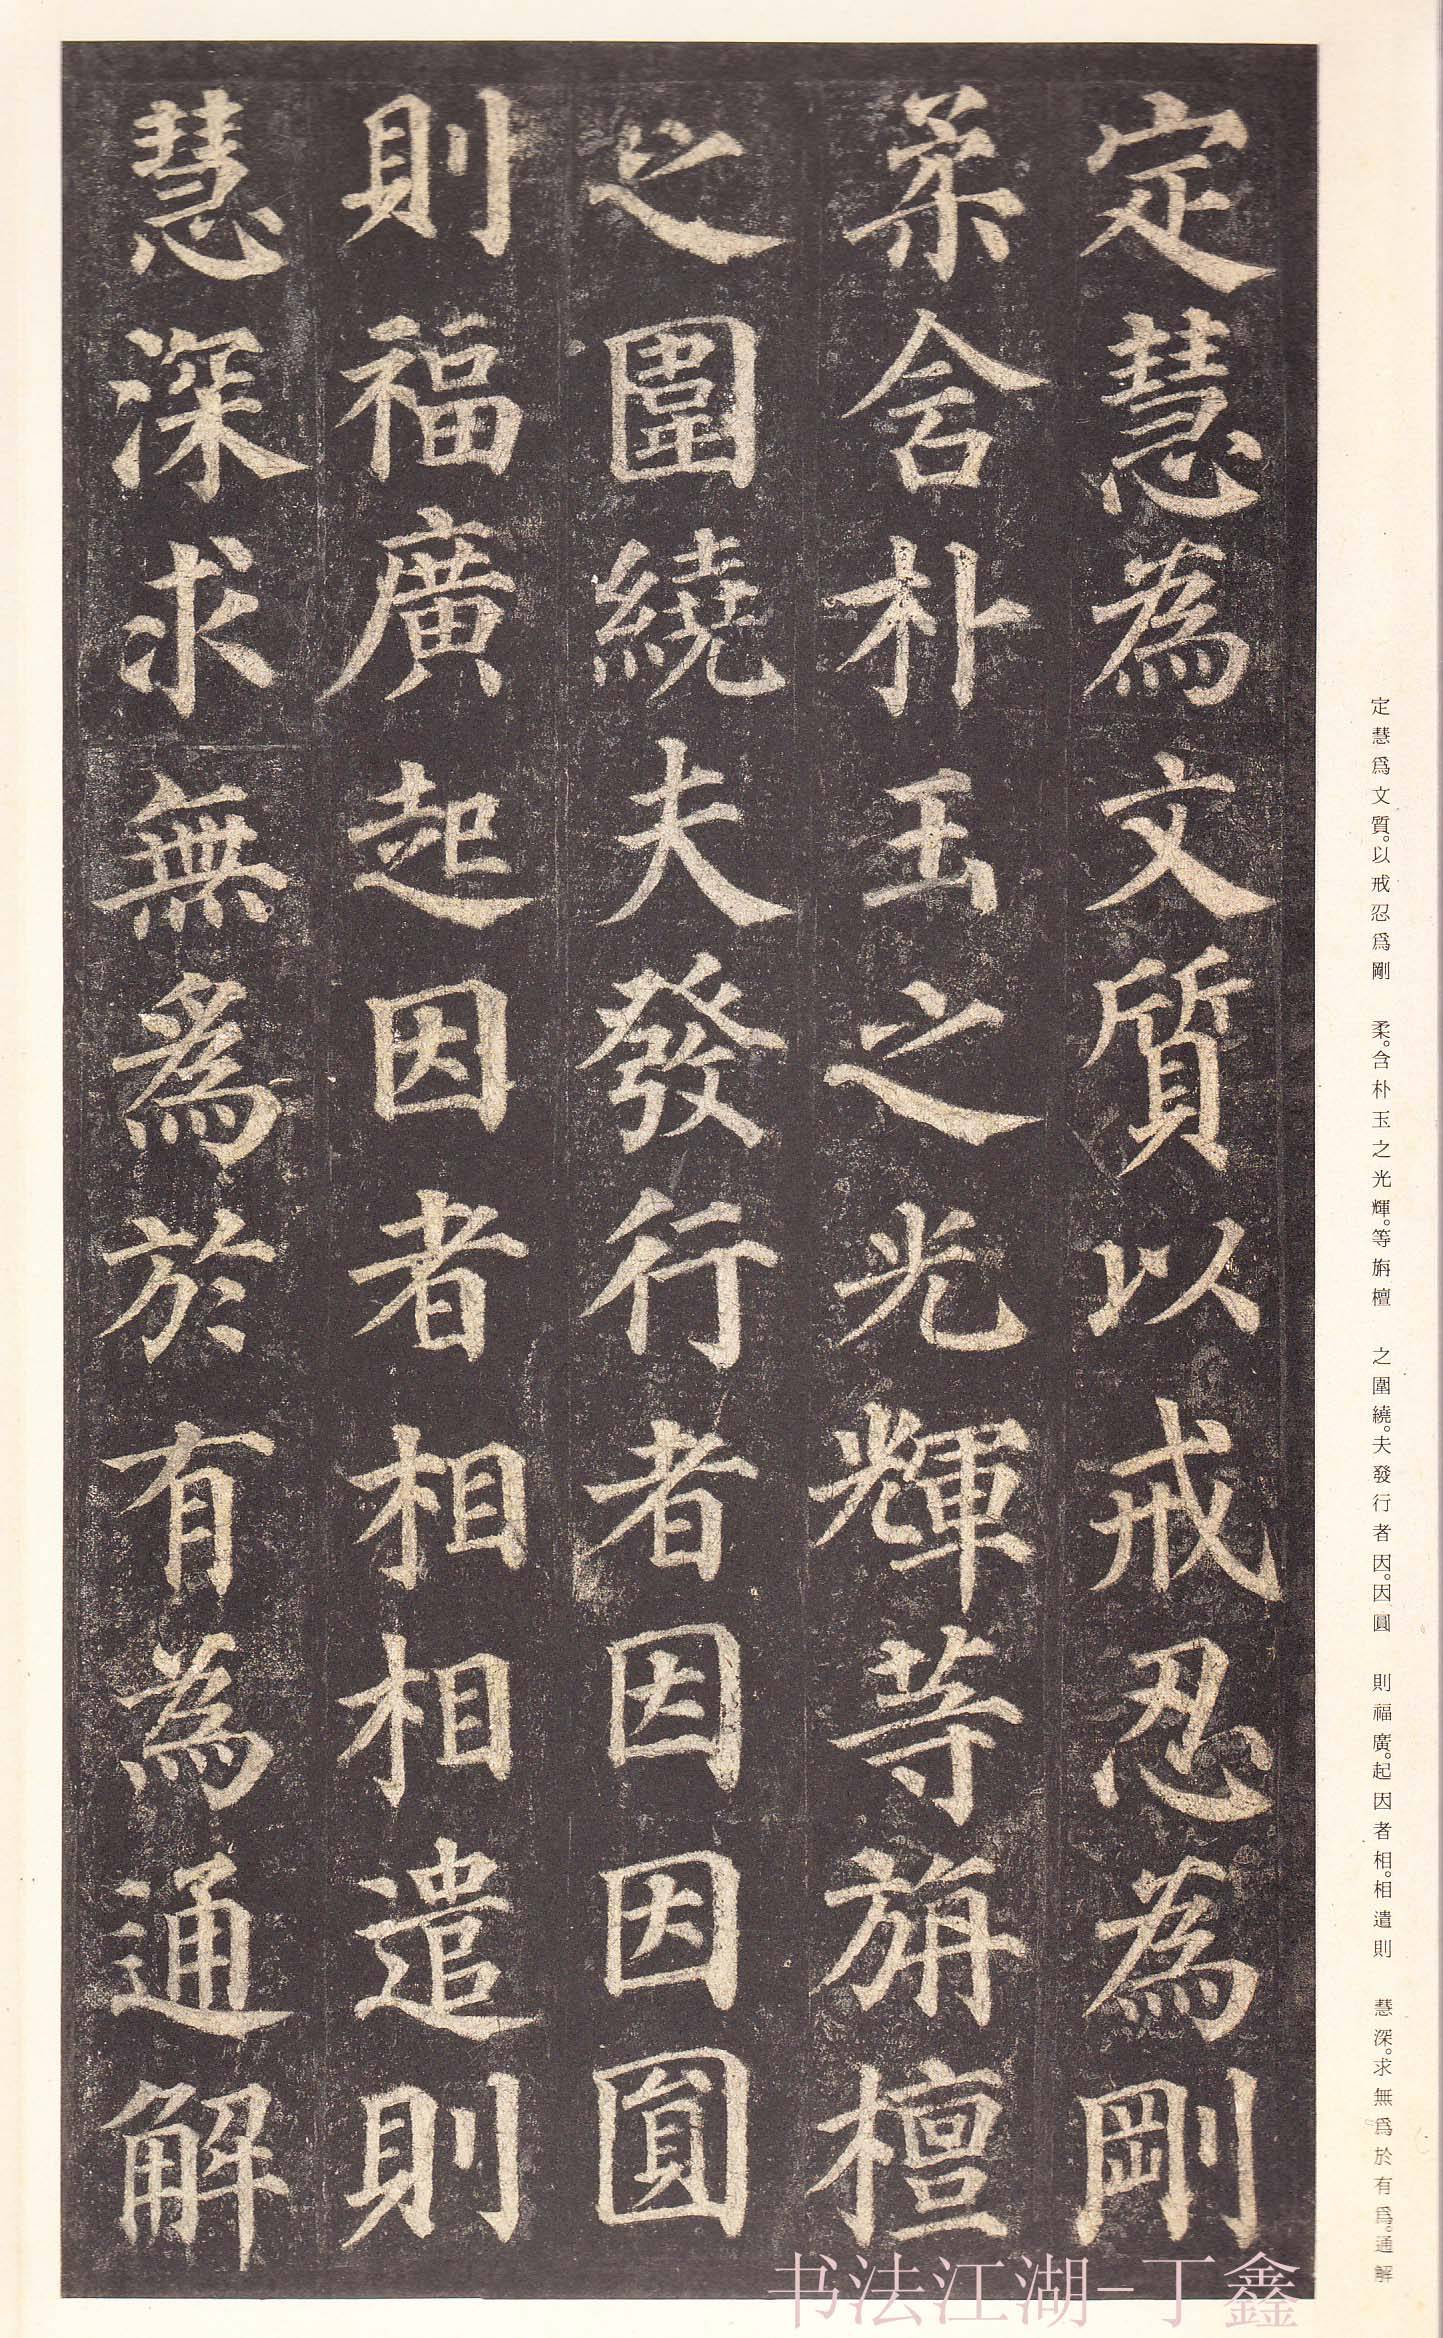 定慧為文質以戒忍為剛
柔含朴玉之光輝等旃檀
之圍繞夫發行者因因圓
則福廣起因者相相遣則
慧深求無為於有為通解
定慧爲文質。以戒忍爲剛　柔。含朴玉之光輝。等旃檀　之圍繞。夫發行者因。因圓　則福廣。起因者相。相遣則　慧深。求無爲於有爲。通解
书法江湖-丁鑫